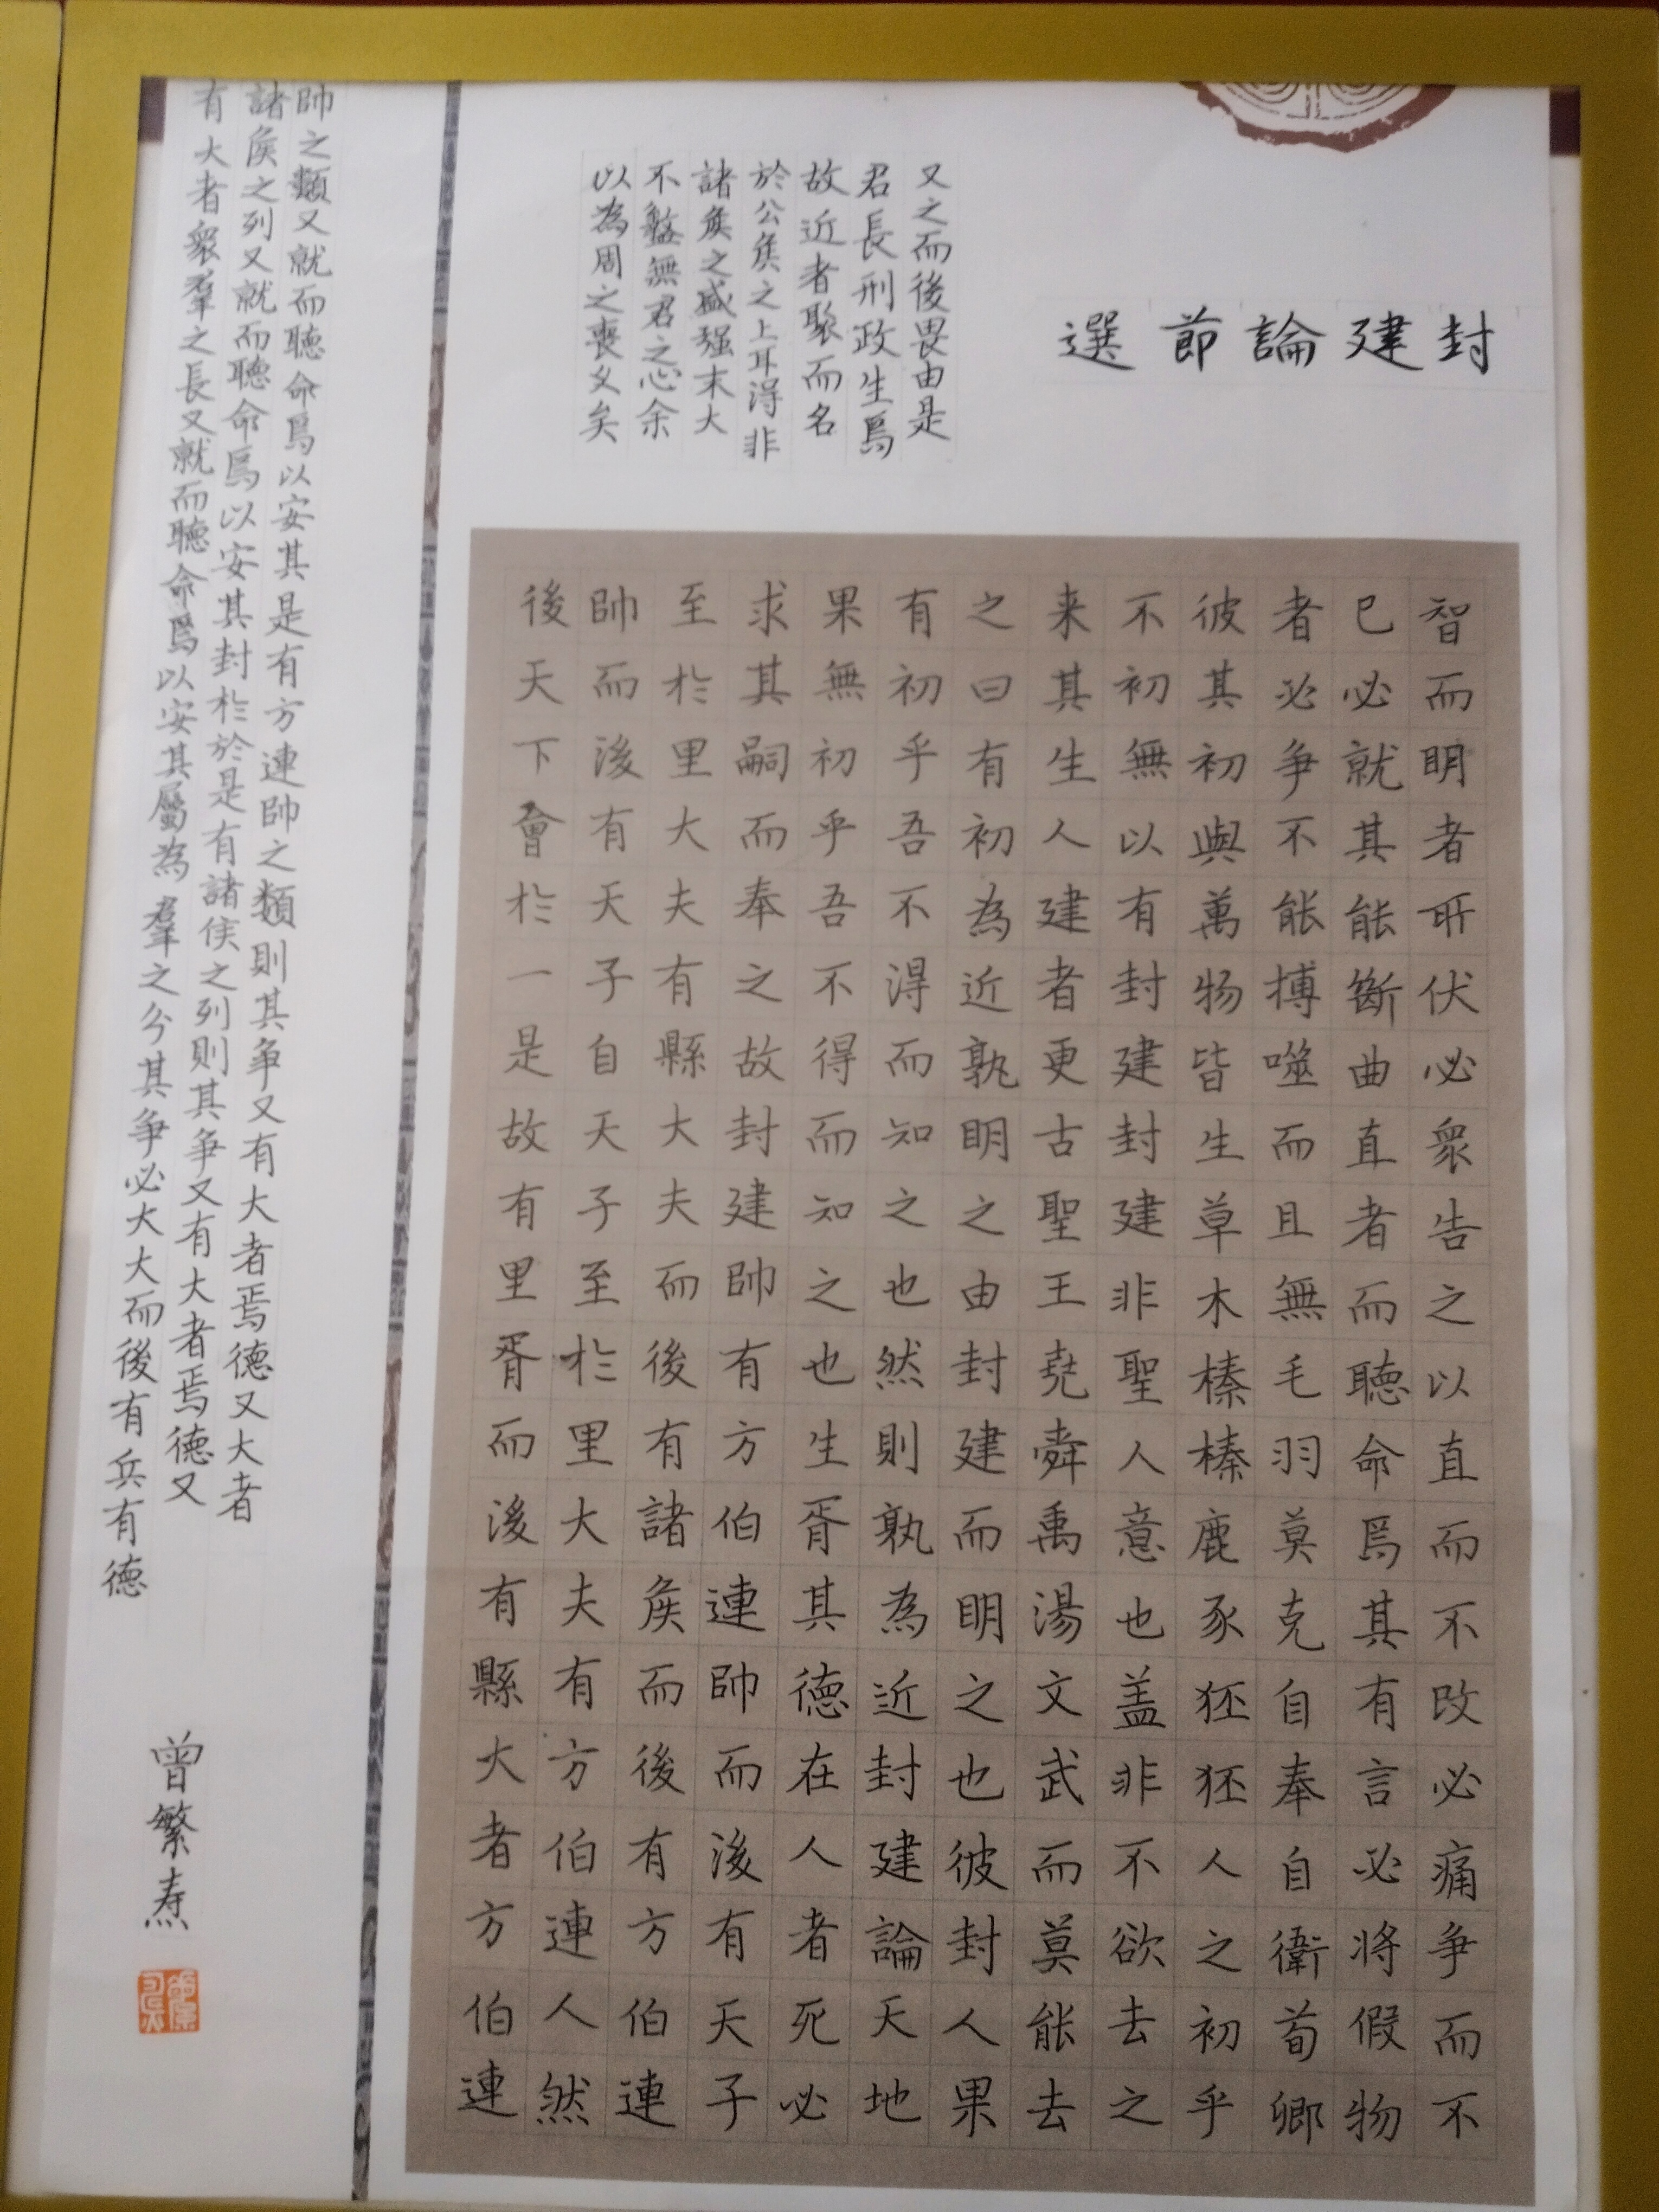 封建論節選
又之而後畏由是
君長刑政生焉
故近者聚而名
於公矦之上耳得非
諸矦之盛强末大
不盤無君之心余
以為周之喪久矣
智而明者所伏必衆告之以直而不改必痛争而不
已必就其能斷曲直者而聽命焉其有言必将假物
者必争不能搏噬而且無毛羽莫克自奉自衛荀卿
彼其初與萬物皆生草木榛榛鹿豕狉狉人之初乎
不初無以有封建封建非聖人意也盖非不欲去之
来其生人建者更古聖王堯舜禹湯文武而莫能去
之曰有初為近孰明之由封建而明之也彼封人果
有初乎吾不得而知之也然則孰為近封建論天地
果無初乎吾不得而知之也生胥其德在人者死必
求其嗣而奉之故封建帥有方伯連帥而後有天子
至於里大夫有縣大夫而後有諸矦而後有方伯連
帥而後有天子自天子至於里大夫有方伯連人然
後天下會於一是故有里胥而後有縣大者方伯連
帥之類又就而聽命焉以安其是有方連帥之類則其争又有大者焉德又大者
諸矦之列又就而聽命焉以安其封於於是有諸侯之列則其争又有大者焉德又
有大者衆羣之長又就而聽命焉以安其屬為羣之分其争必大大而後有兵有德
曾繁焘